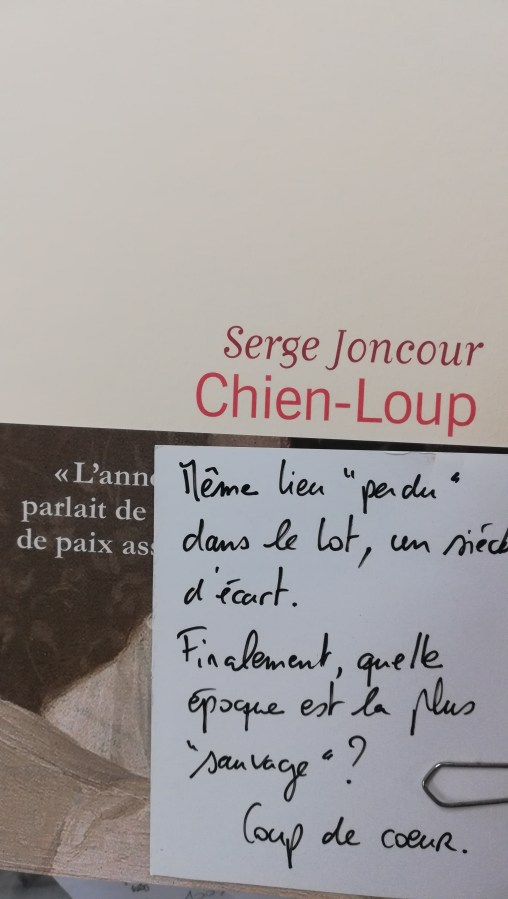 Serge Joncour
Chien-Loup
« L'anné
parlait de
de paix ass
Même lieu "perdu"
dans le Lot, un siècl
d'écart.
Finalement, quelle
époque est la plus
"sauvage" ?
Coup de coeur.